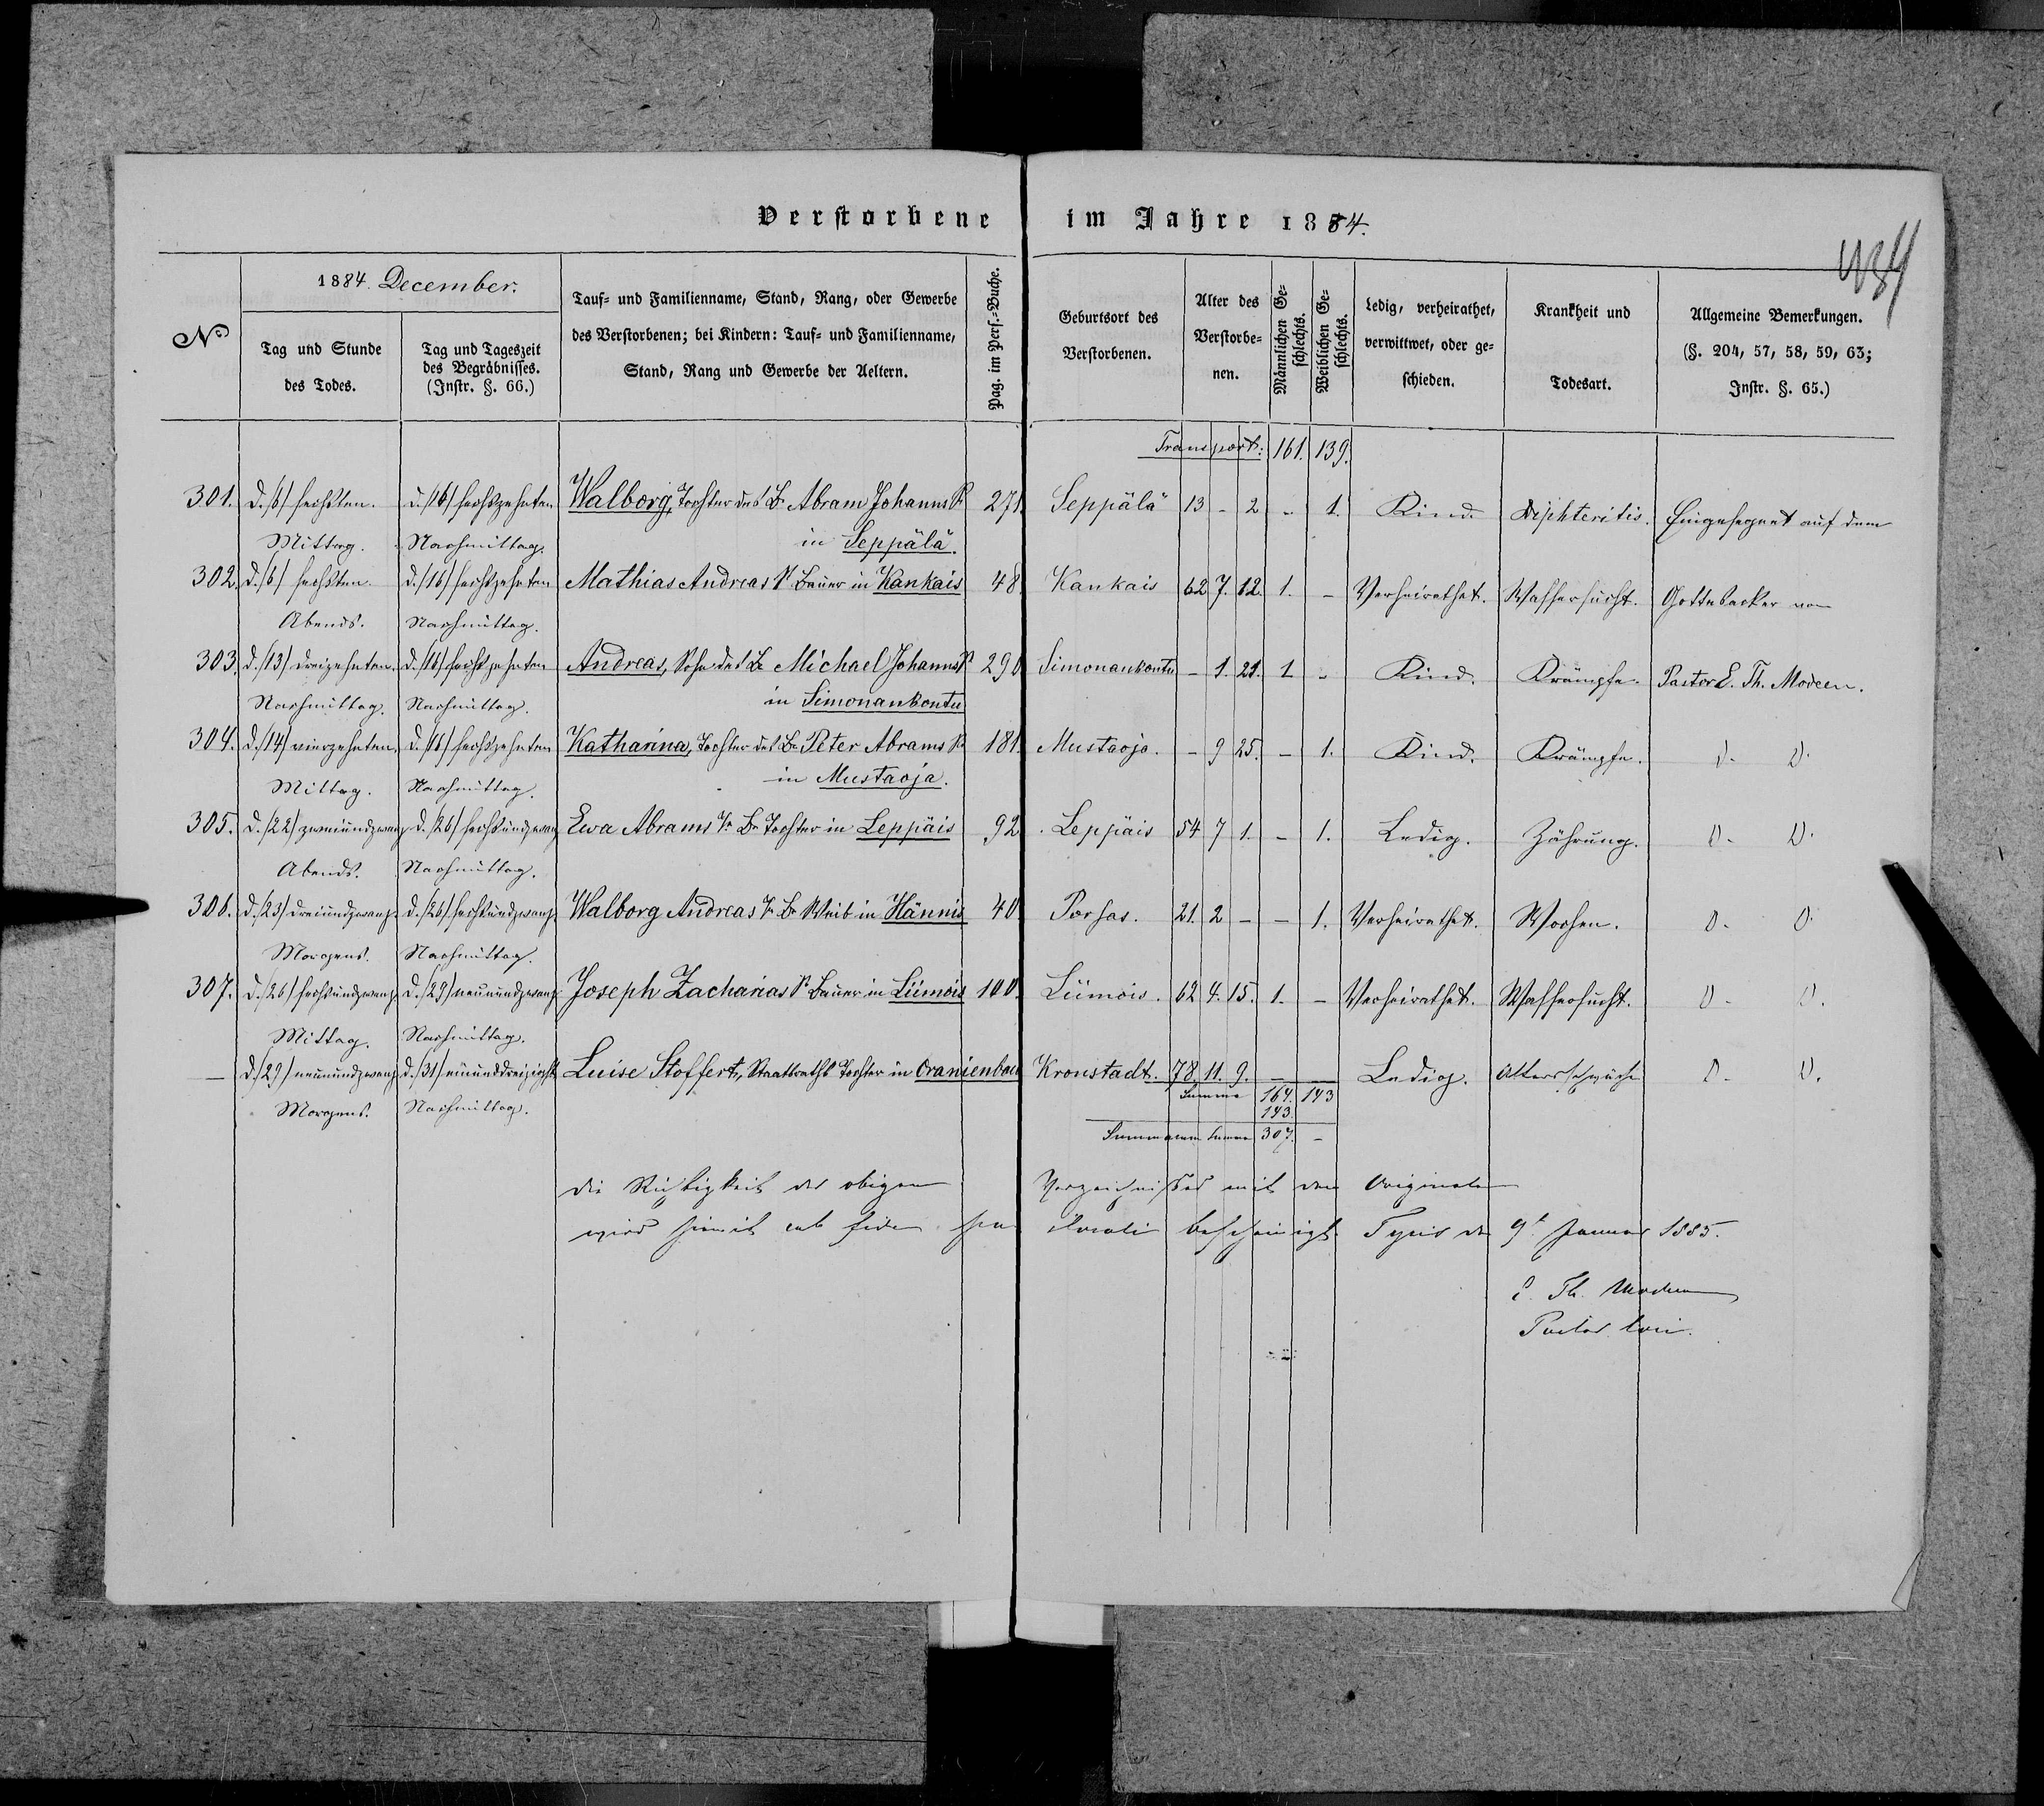 Verstorbene im Jahre 1884.
484
No
1884. December.
Tag und Stunde des Todes.
Tag und Tageszeit des Begräbnisses. (Instr. §. 66.)
Tauf- und Familienname, Stand, Rang, oder Gewerbe des Verstorbenen; bei Kindern: Tauf- und Familienname, Stand, Rang und Gewerbe der Aeltern.
Pag. im Pers.-Buche.
Geburtsort des Verstorbenen.
Alter des Verstorbenen.
Männlichen Geschlechts.
Weiblichen Geschlechts.
Ledig, verheirathet, verwittwet, oder geschieden.
Krankheit und Todesart.
Allgemeine Bemerkungen. (§. 204, 57, 58, 59, 63; Instr. §. 65.)
Transport: 161. 139.
301. d. /6/ sechsten. d. /16/ sechszehnten Walborg, Tochter des Br Abram Johanns S. 271. Seppälä 13 - 2 - 1. Kind. Diphteritis. Eingesegnet auf dem
Mittag. Nachmittag. in Seppälä.
302. d. /6/ sechsten. d. /16/ sechszehnten Mathias Andreas S. Bauer in Kankais 48. Kankais 62 7. 12. 1. - Verheirathet. Wassersucht. Gottesacker vom
Abends. Nachmittag.
303. d. /13/ dreizehnten. d. /16/ sechszehnten Andreas, Sohn des Br Michael Johanns S. 290 Simonankontu - 1. 21. 1 - Kind. Krämpfe. Pastor E. Th. Modeen.
Nachmittag. Nachmittag. in Simonankontu
304. d. /14/ vierzehnten. d. /16/ sechszehnten Katharina, Tochter des Br Peter Abrams S. 181. Mustaoja. - 9 25. - 1. Kind. Krämpfe. D. D.
Mittag. Nachmittag. in Mustaoja.
305. d. /22/ zweiundzwanz. d. /26/ sechsundzwanz Ewa Abrams Tr Br Tochter in Leppäis 92 Leppäis 54 7 1. - 1. Ledig. Zährung. D. D.
Abends. Nachmittag.
306. d. /23/ dreiundzwanz. d. /26/ sechsundzwanz. Walborg Andreas Tr Br Weib in Hännis 40 Porsas. 21. 2 - - 1. Verheirathet. Wochen. D. D.
Morgens. Nachmittag.
307. d. /26/ sechsundzwanz. d. /29/ neunundzwanz. Joseph Zacharias S. Bauer in Liimois 100. Liimois. 62 4. 15. 1. - Verheirathet. Wassersucht. D. D.
Mittag. Nachmittag.
— d. /29/ neunundzwanz. d. /31/ einunddreizigst. Luise Stoffert, Staatsraths Tochter in Oranienbau Kronstadt. 78. 11. 9. - - Ledig. Altersschwäche D. D.
Morgens. Nachmittag.
Summa 164. 143
143.
Summarum Summa 307. -
Die Richtigkeit des obigen Verzeichnisses mit dem Originalen
wird hiemit sub fide pastorali bescheinigt. Tyris d. 9t Januar 1885.
E. Th. Modeen
Pastor loci.